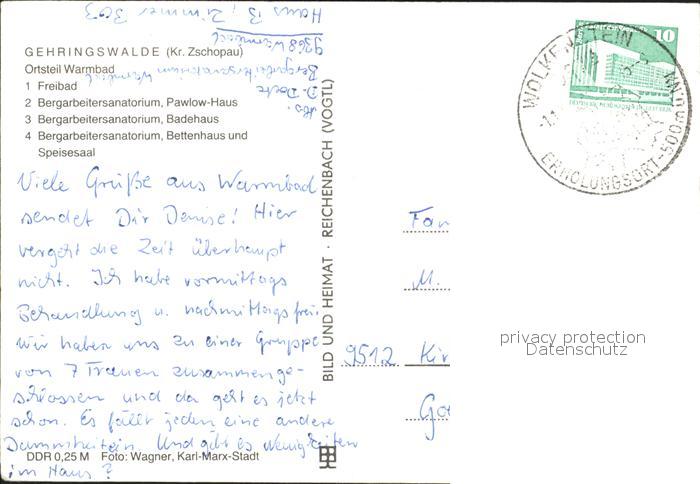 Haus B, Zimmer 303
9368 Warmbad
Bergarbeitersanatorium Warmbad
Abs.
GEHRINGSWALDE (Kr. Zschopau)
Ortsteil Warmbad
1 Freibad
2 Bergarbeitersanatorium, Pawlow-Haus
3 Bergarbeitersanatorium, Badehaus
4 Bergarbeitersanatorium, Bettenhaus und
Speisesaal
Viele Grüße aus Warmbad
sendet Dir Denise! Hier
vergeht die Zeit überhaupt
nicht. Ich habe vormittags
Behandlung u. nachmittags frei.
Wir haben uns zu einer Gruppe
von 7 Frauen zusammenge-
schlossen und da geht es jetzt
schon. Es fällt jeden eine andere
Dummheit ein. Und gibt es Neuigkeiten
im Haus?
DDR 0,25 M Foto: Wagner, Karl-Marx-Stadt
BILD UND HEIMAT · REICHENBACH (VOGTL)
10
WOLKENSTEIN
ERHOLUNGSORT-500 m ü NN
Fam
M.
9512 Kir
privacy protection
Datenschutz